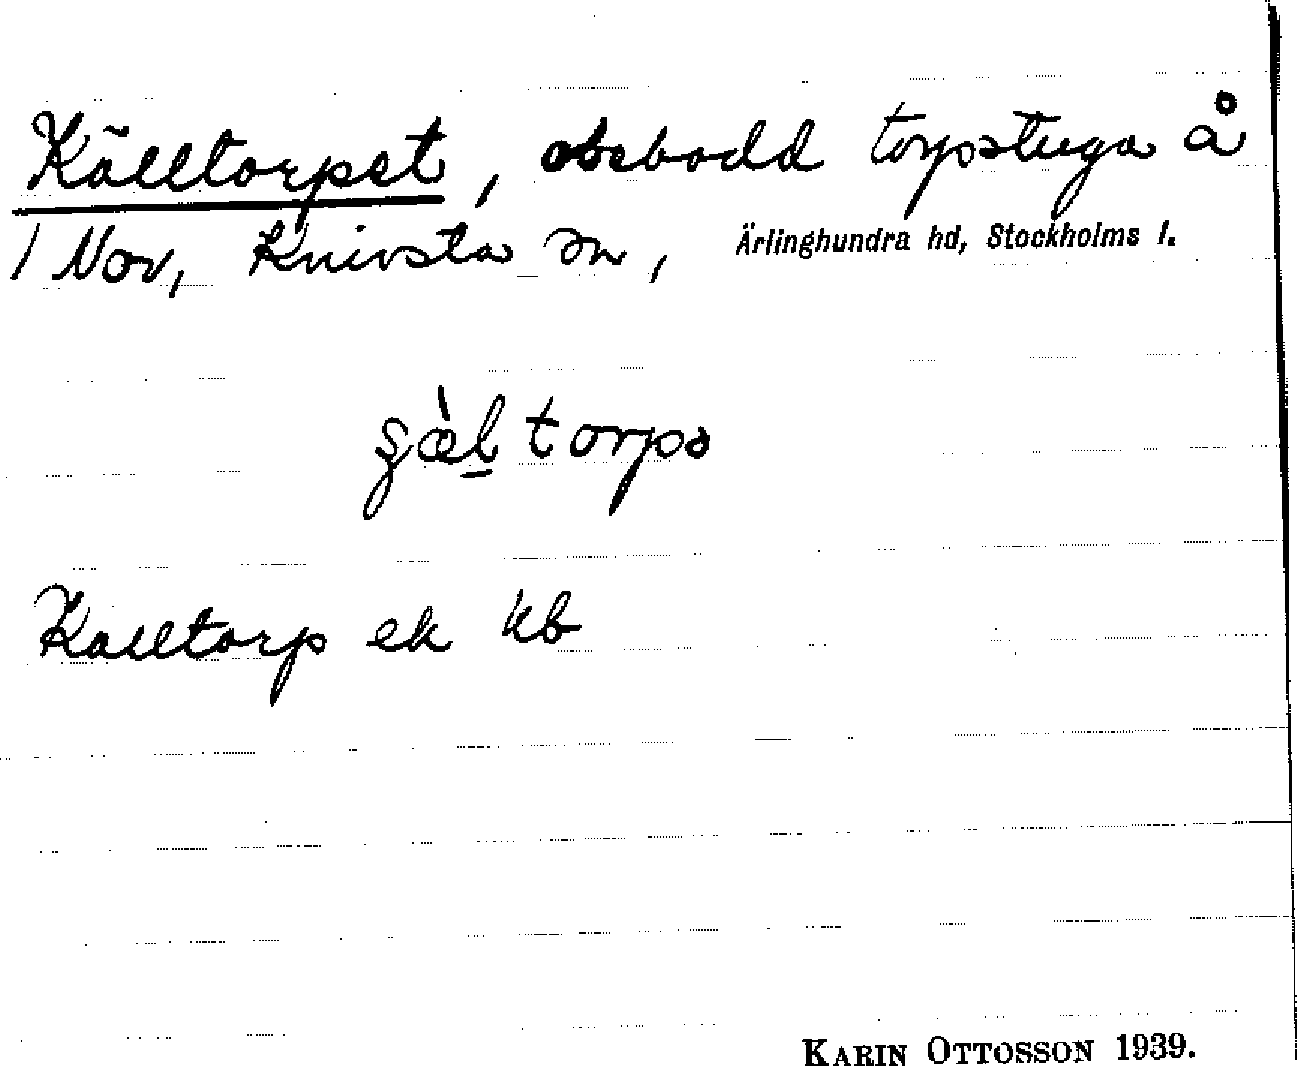 Källtorpet, obebodd torpstuga å
1 Nov, Knivsta sn, Ärlinghundra hd, Stockholms l.
torpə
Källtorp ek kb
KARIN OTTOSSON 1939.